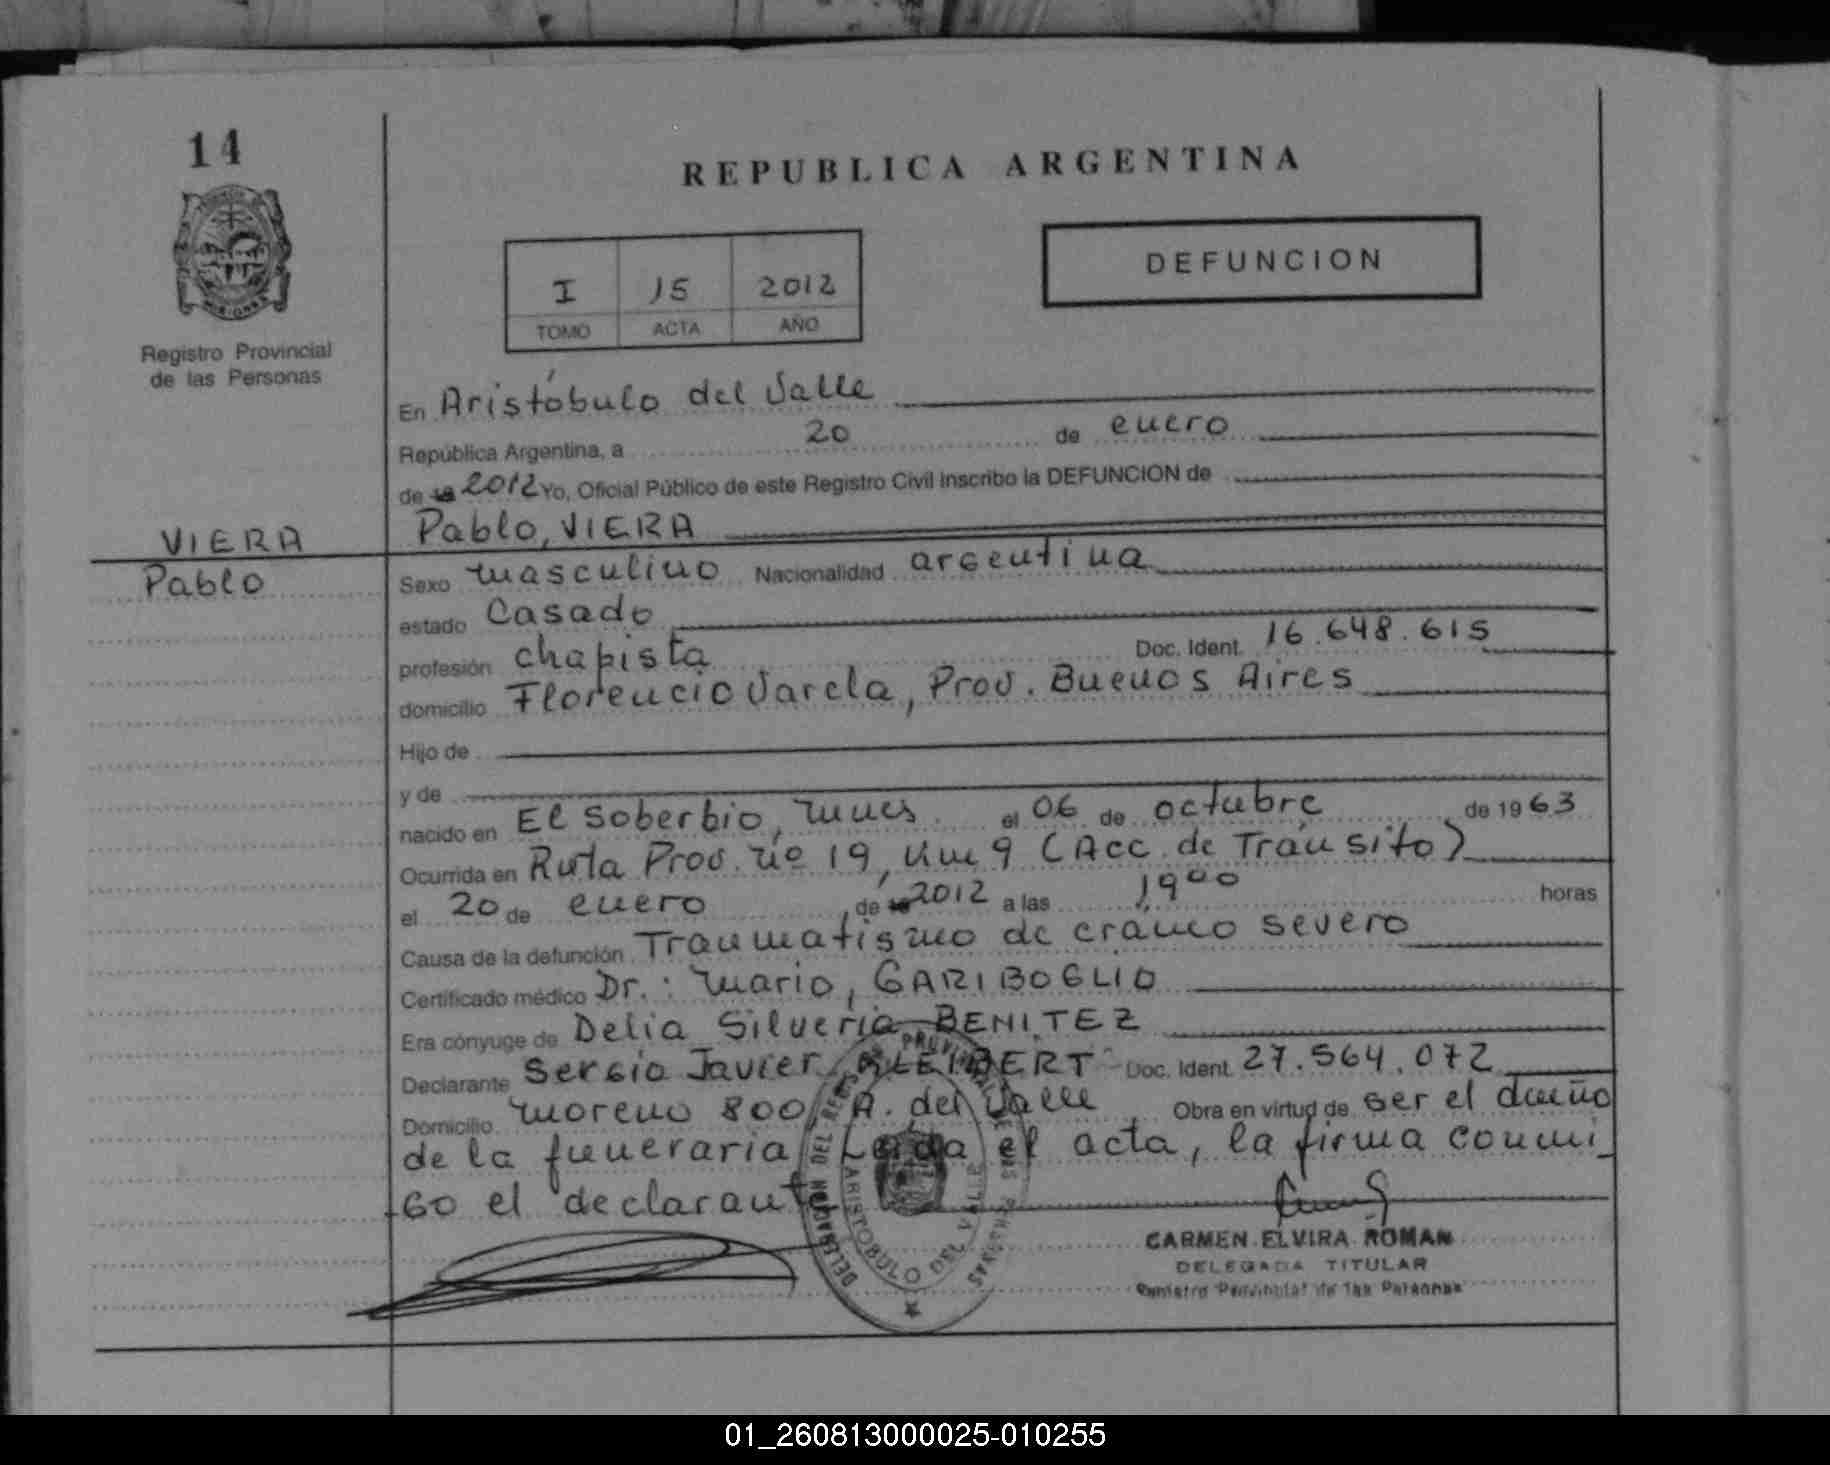 14
REPUBLICA ARGENTINA
DEFUNCION
I 15 2012
TOMO ACTA AÑO
Registro Provincial
de las Personas
En Aristóbulo del Valle
República Argentina, a 20 de enero
de 2012 Yo, Oficial Público de este Registro Civil inscribo la DEFUNCION de
VIERA
Pablo, VIERA
Pablo
Sexo masculino Nacionalidad argentina
estado Casado
profesión chapista Doc. Ident. 16.648.615
domicilio Florencio Varela, Prov. Buenos Aires
Hijo de
y de
nacido en El Soberbio, Mnes. el 06 de octubre de 1963
Ocurrida en Ruta Prov. nº 19, Km 9 (Acc. de Tránsito)
el 20 de enero de 2012 a las 19⁰⁰ horas
Causa de la defunción Traumatismo de cráneo severo
Certificado médico Dr.: Mario, GARIBOGLIO
Era cónyuge de Delia Silveria BENITEZ
Declarante Sergio Javier KLEIBERT Doc. Ident. 27.564.072
Domicilio Moreno 800 A. del Valle Obra en virtud de ser el dueño
de la funeraria Leída el acta, la firma conmi
go el declarante
ARISTOBULO DEL VALLE
CARMEN ELVIRA ROMAN
DELEGADA TITULAR
Registro Provincial de las Personas
01_260813000025-010255